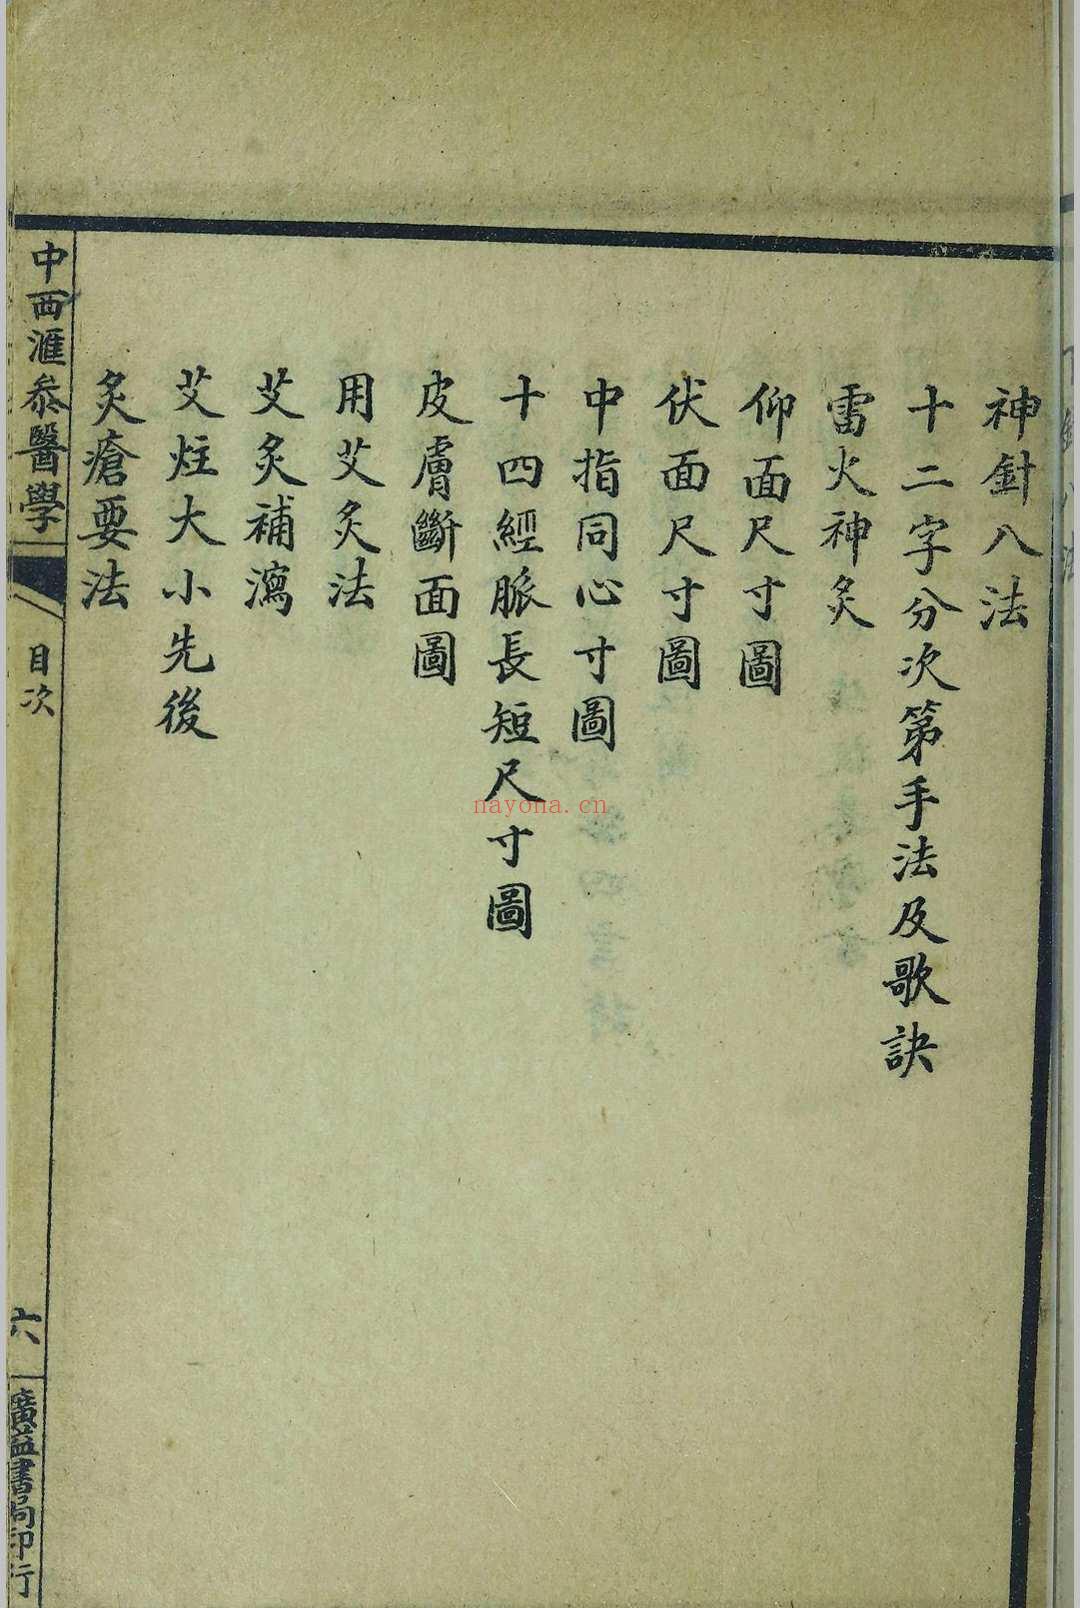 神針八法
十二字分次第手法及歌訣
雷火神炙
仰面尺寸圖
伏面尺寸圖
中指同心寸圖
十四經脈長短尺寸圖
皮膚斷面圖
用艾炙法
艾炙補瀉
艾炷大小先後
炙瘡要法
中西滙参醫學
目次
六
廣益書局印行
nayona.cn